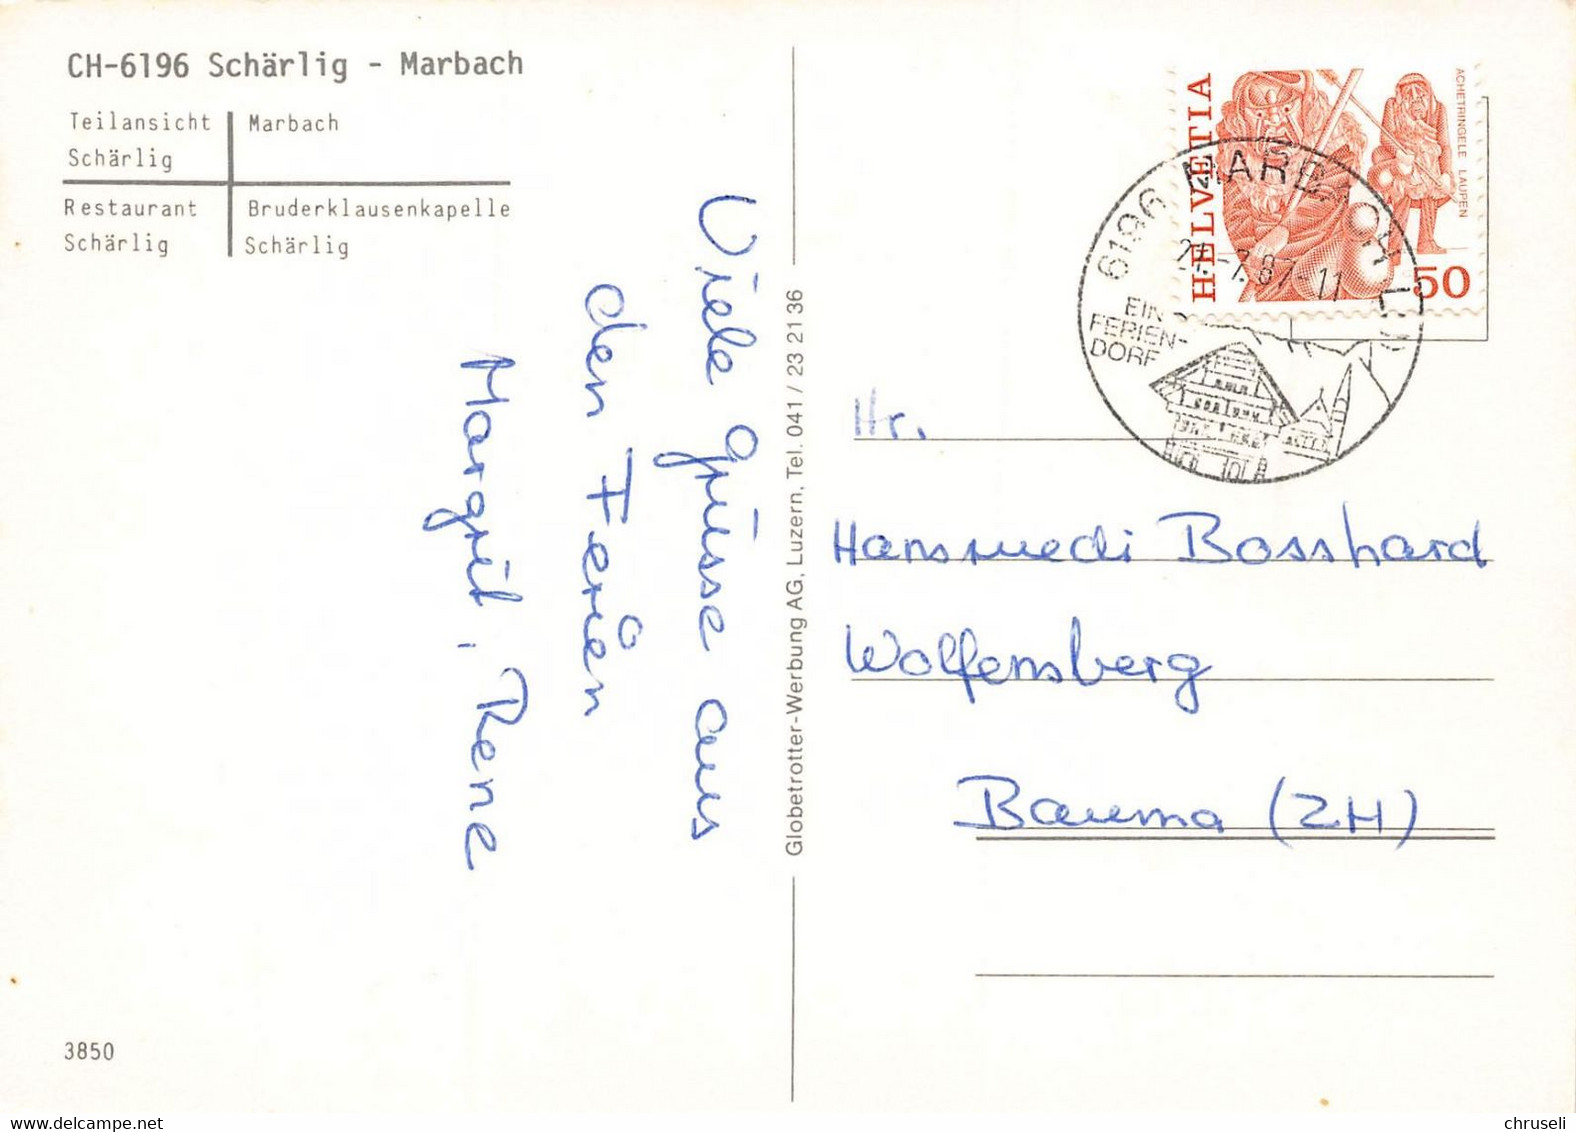 CH-6196 Schärlig - Marbach
Teilansicht
Schärlig
Marbach
Restaurant
Schärlig
Bruderklausenkapelle
Schärlig
Viele grüsse aus
den Ferien
Margrit, Rene
3850
Globetrotter-Werbung AG, Luzern, Tel. 041 / 23 21 36
HELVETIA
ACHETRINGELE LAUPEN
50
6196 MARBACH LU
-7.87-11
EIN
FERIEN-
DORF
Hr.
Hansruedi Bosshard
Wolfensberg
Bauma (ZH)
chruseli